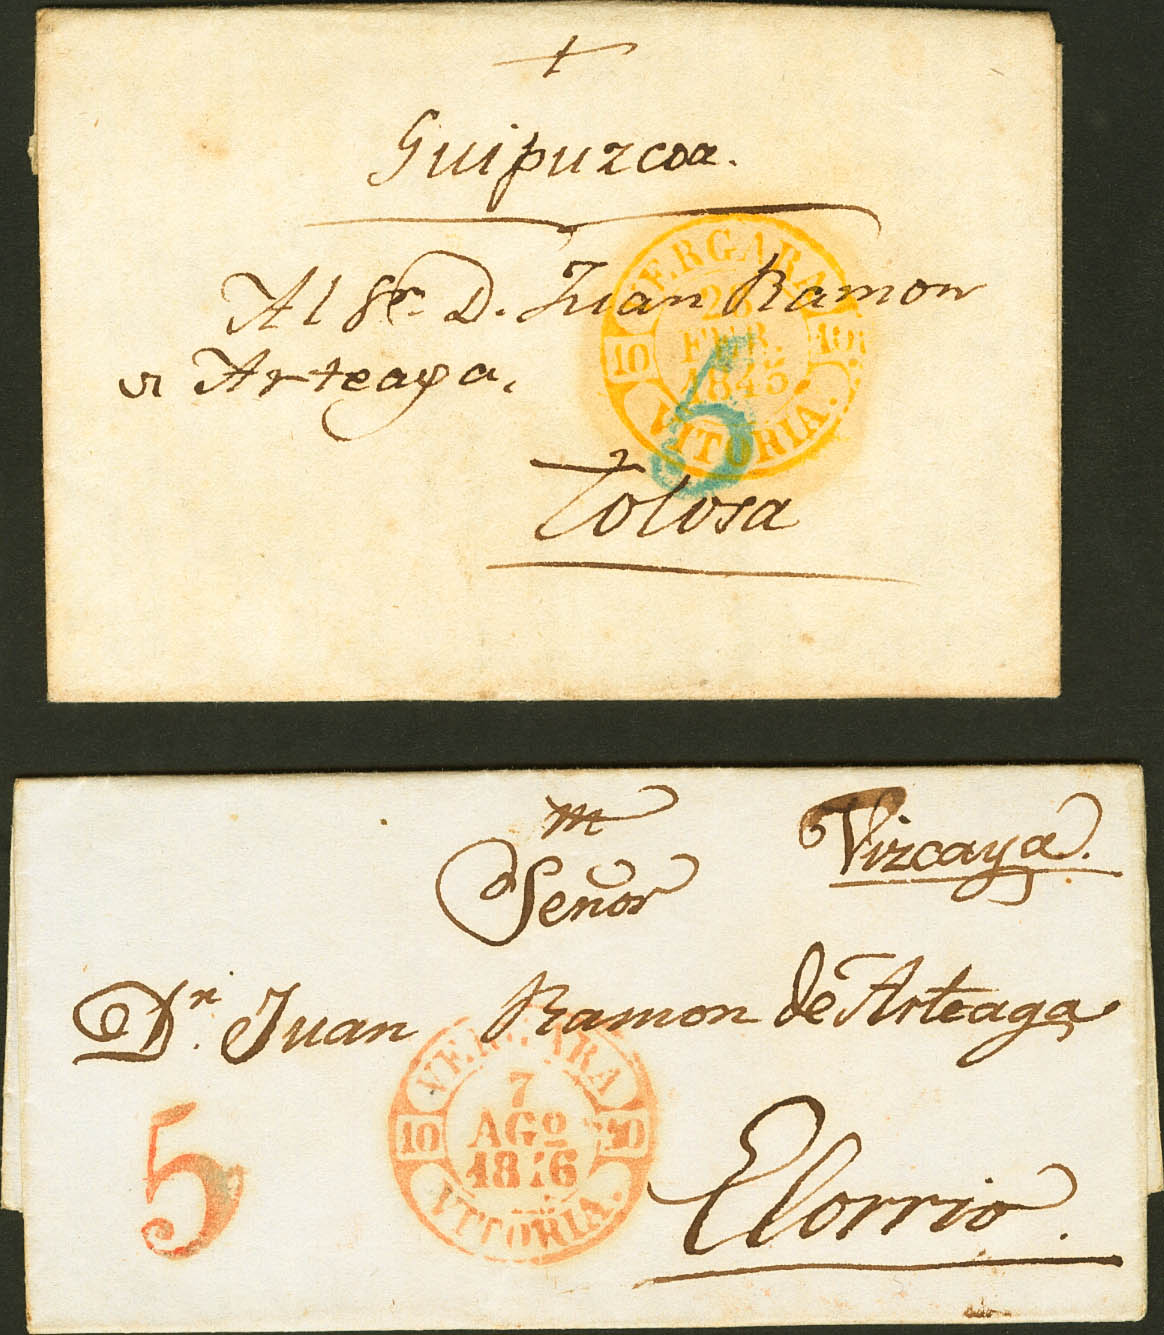 Guipuzcoa.
Al Sr. D. Juan Ramon
Arteaga,
Tolosa
VERGARA
FEB.
1845.
10 10
VITORIA.
5
Vizcaya.
Señor
Dn. Juan Ramon de Arteaga
Elorrio.
VERGARA
7
AGO
10 10
VITORIA.
5